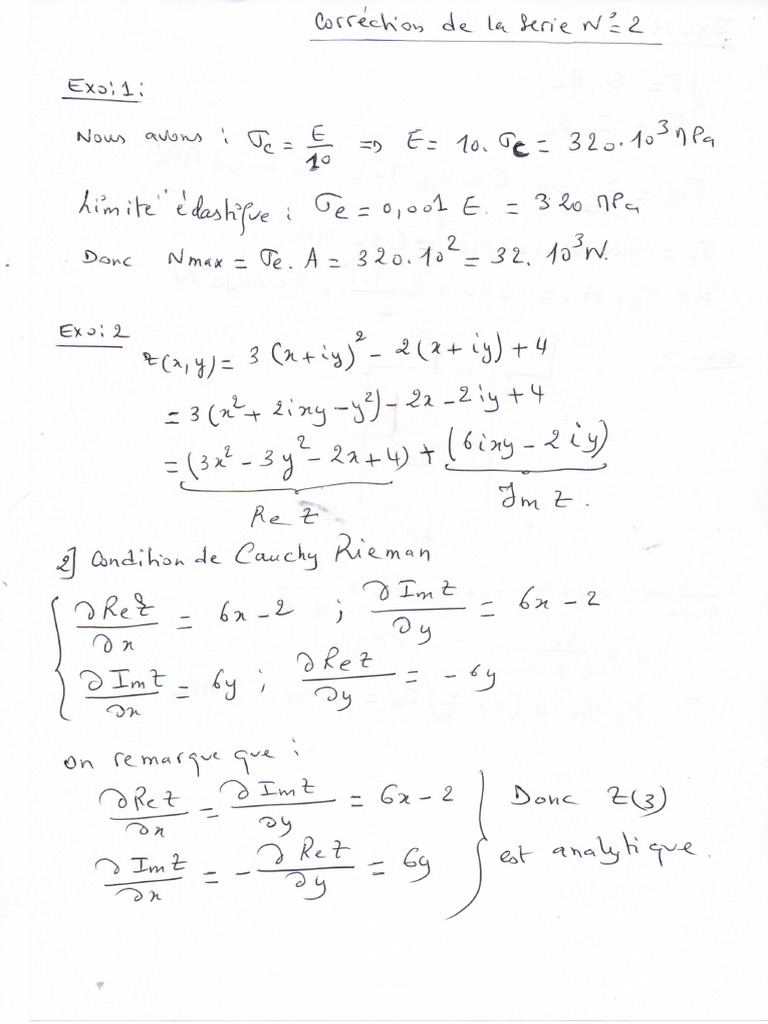 Corréction de la serie N°=2
Exo:1:
Nous avons : σc = E/10 => E = 10. σc = 320.10³ MPa
Limite élastique : σe = 0,001 E. = 320 MPa
Donc Nmax = σe. A = 320.10² = 32. 10³ N.
Exo:2
z(x,y) = 3(x+iy)² - 2(x+iy)+4
= 3(x²+2ixy-y²) - 2x - 2iy + 4
= (3x² - 3y² - 2x + 4) + (6ixy - 2iy)
Re Z Im Z.
2] Condition de Cauchy Rieman
∂ReZ/∂x = 6x-2 ; ∂ImZ/∂y = 6x-2
∂ImZ/∂x = 6y ; ∂ReZ/∂y = -6y
on remarque que :
∂ReZ/∂x = ∂ImZ/∂y = 6x-2 } Donc Z(3)
∂ImZ/∂x = -∂ReZ/∂y = 6y } est analytique.